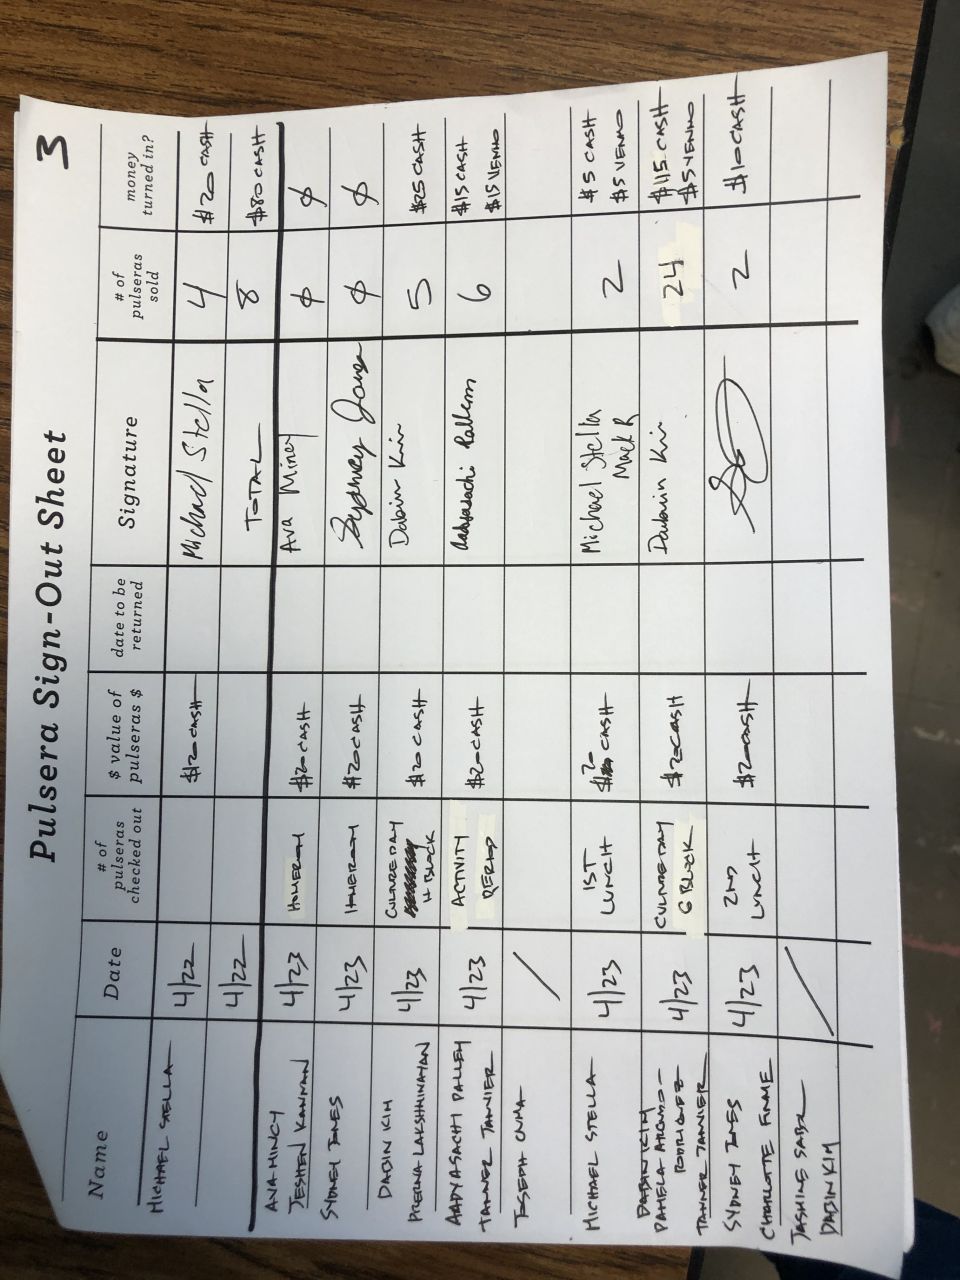 Pulsera Sign-Out Sheet 3
Name Date # of pulseras checked out $ value of pulseras $ date to be returned Signature # of pulseras sold money turned in?
MICHAEL STELLA 4/22 $20 CASH Michael Stella 4 $20 CASH
4/22 TOTAL 8 $80 CASH
AVA MINCY
JESHEN KANNAN 4/23 HOMEROOM $20 CASH Ava Mincy ϕ ϕ
SYDNEY JONES 4/23 HOMEROOM $20 CASH Sydney Jones ϕ ϕ
DABIN KIM
PRERNA LAKSHMINAYAN 4/23 CULTURE DAY
H BLOCK $20 CASH Dabin Kim 5 $25 CASH
AADYASACHI PALLEM
TANNER TANNIER 4/23 ACTIVITY
PERIOD $20 CASH 6 $15 CASH
$15 VENMO
JOSEPH /
MICHAEL STELLA 4/23 1ST
LUNCH $20 CASH Michael Stella
Mack R 2 $5 CASH
$5 VENMO
DABIN KIM
PAMELA
RODRIGUEZ
TANNER TANNIER 4/23 CULTURE DAY
G BLOCK $20 CASH Dabin Kim 24 $115 CASH
$5 VENMO
SYDNEY JONES
CHARLOTTE 4/23 2ND
LUNCH $20 CASH 2 $10 CASH
JASHINE /
DABIN KIM